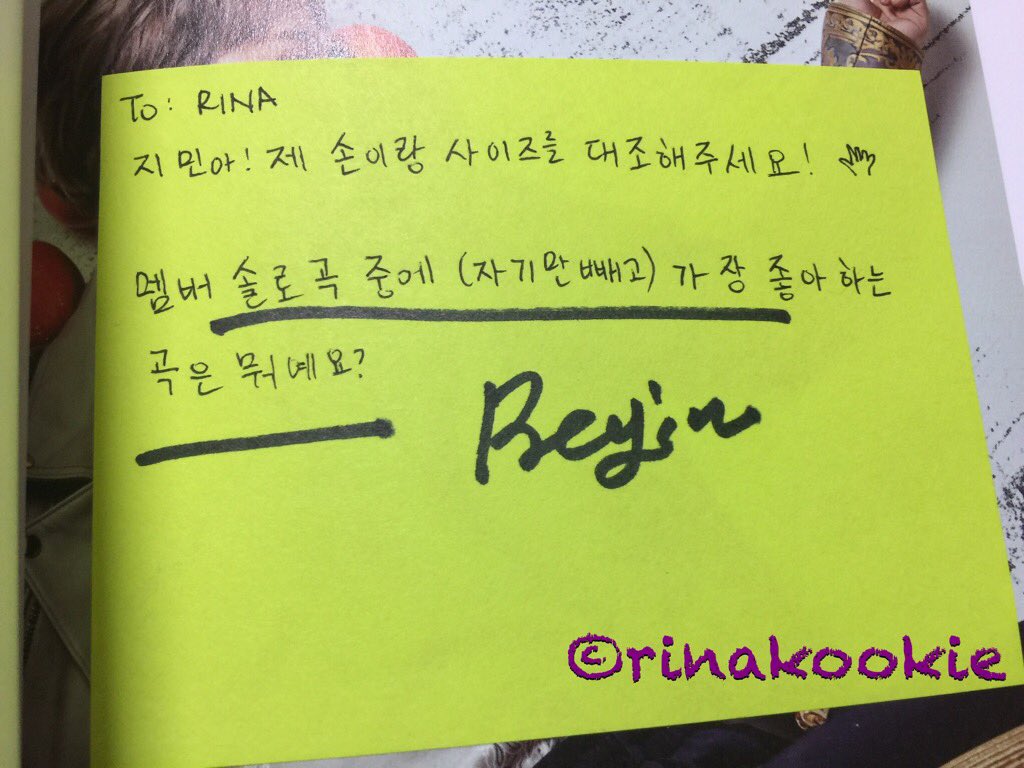 To: RINA
지민아! 제 손이랑 사이즈를 대조해주세요!
멤버 솔로곡 중에 (자기만 빼고) 가장 좋아하는
곡은 뭐예요?
Begin
©rinakookie